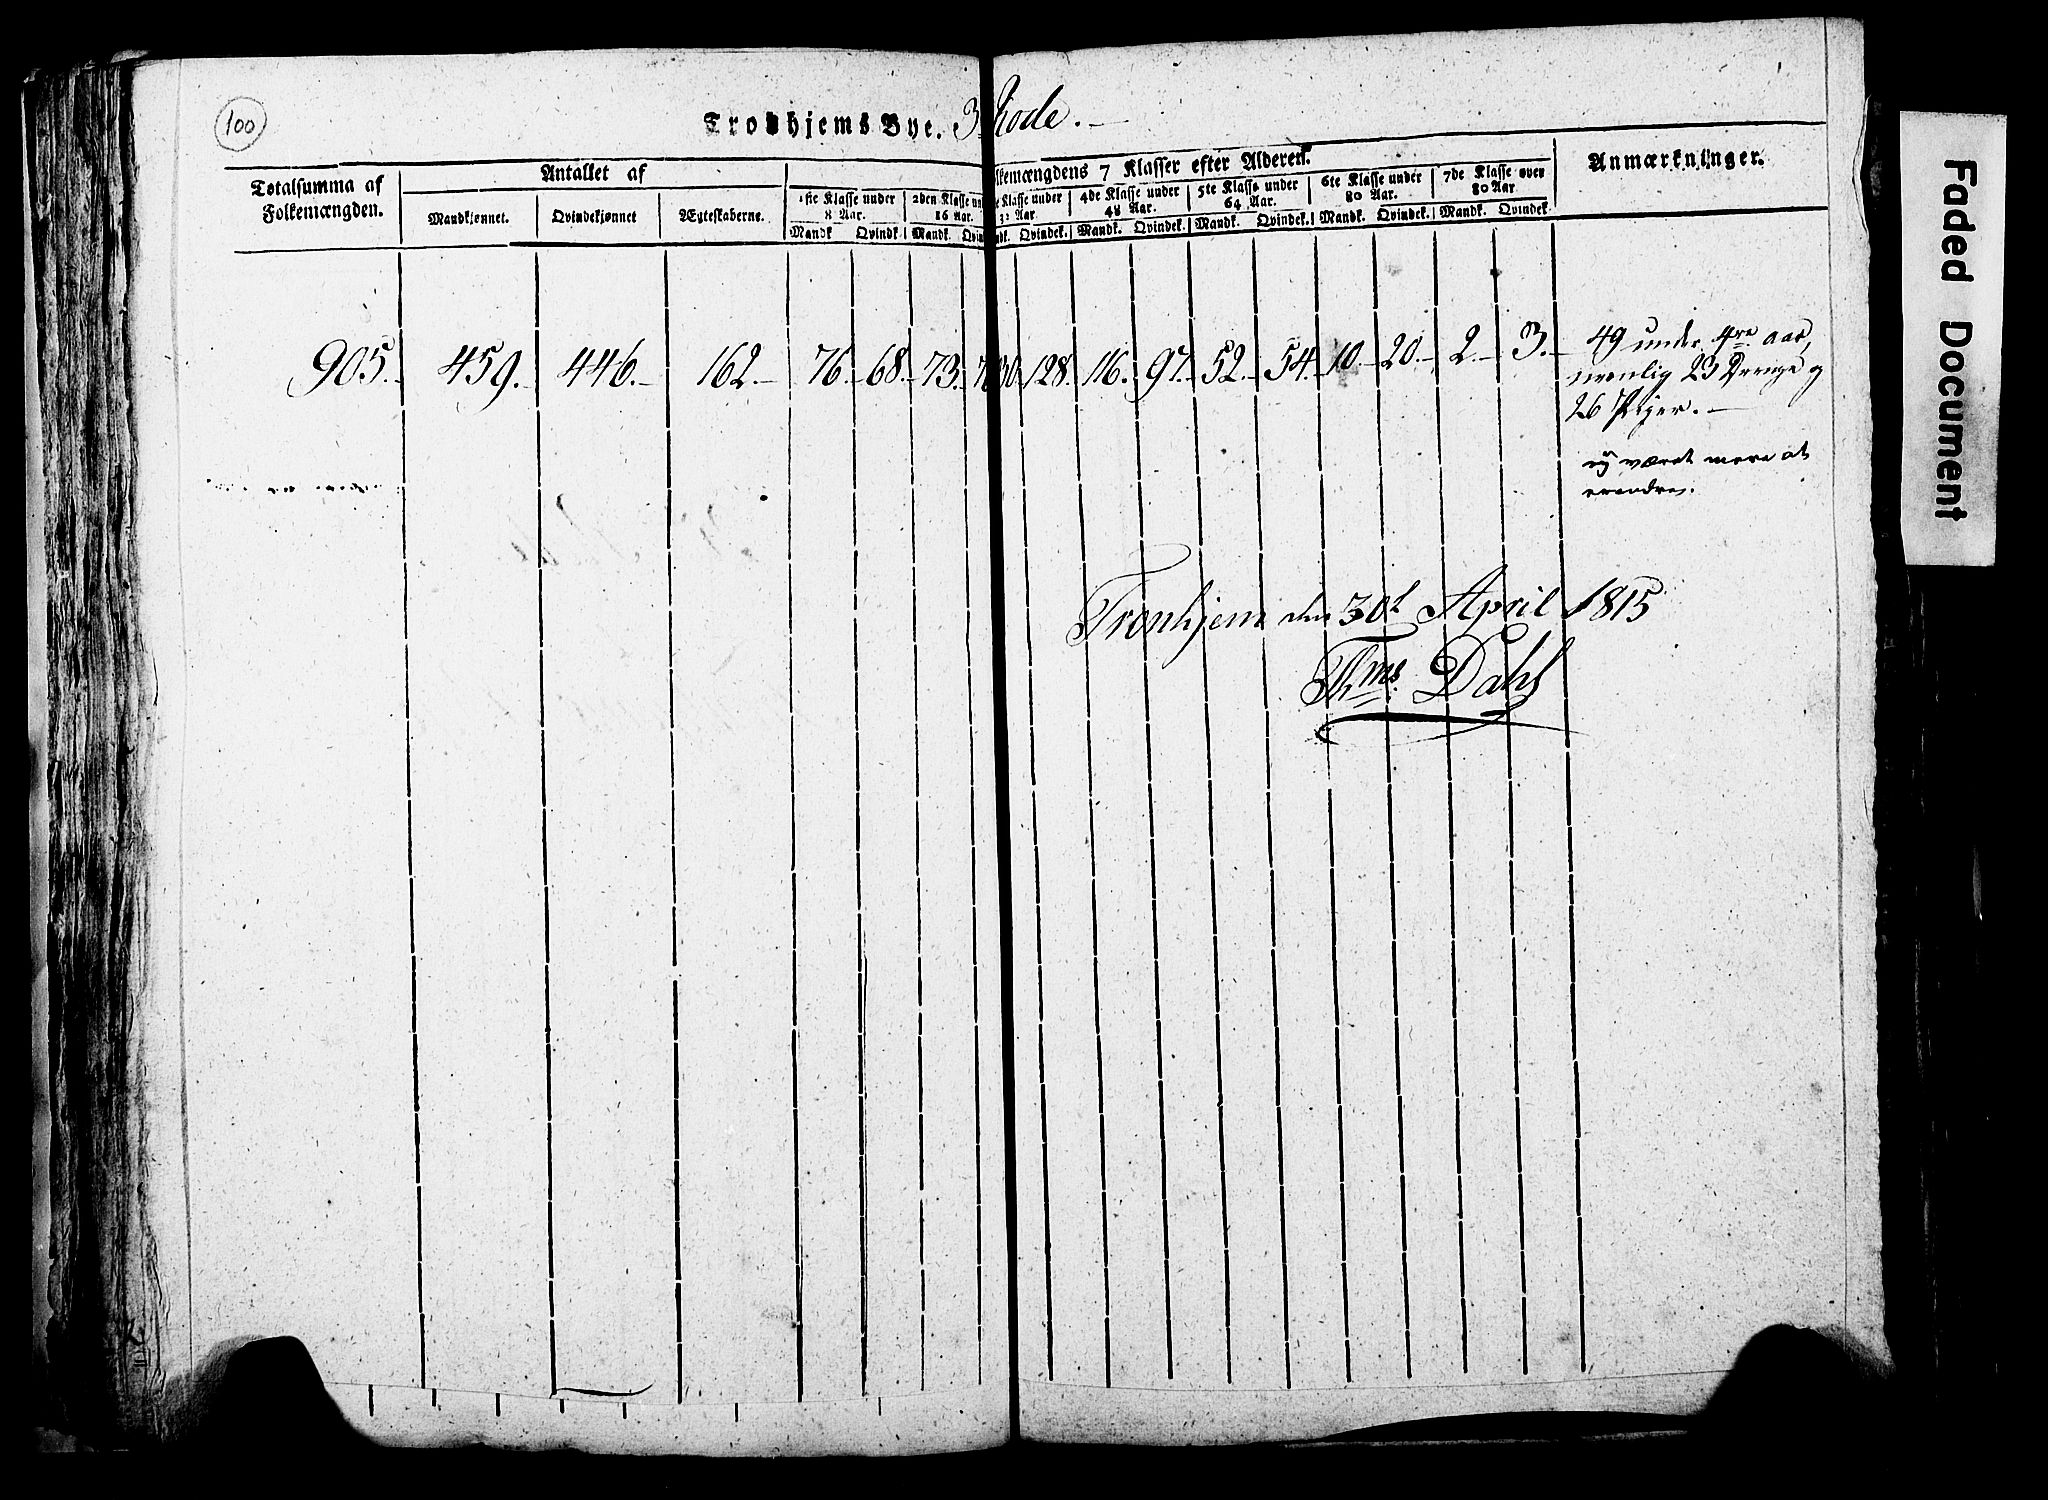 100
Trondhjems Bye. 3 Rode.
Totalsumma af Folkemængden.
Antallet af
Mandkjønnet. Qvindekjønnet Ægteskaberne.
lkemængdens 7 Klasser efter Alderen.
1ste Klasse under 8 Aar.
2den Klasse und 16 Aar.
Klasse under Aar.
4de Klasse under 48 Aar.
5te Klasse under 64 Aar.
6te Klasse under 80 Aar.
7de Klasse over 80 Aar
Anmærkninger.
Mandk Qvindk Mandk. Qvin ndk. Qvindek. Mandk. Qvindek. Mandk. Qvindek. Mandk. Qvindek. Mandk. Qvindek.
905. 459. 446. 162 76 68 73. 7 30 128. 116. 97. 52. 54. 10. 20. 2. 3.
49 under 4re aar,
nemlig 23 Drenge og
26 Piger.
været mere at
Tronhjem den 30t April 1815
Thms. Dahl
Faded Document